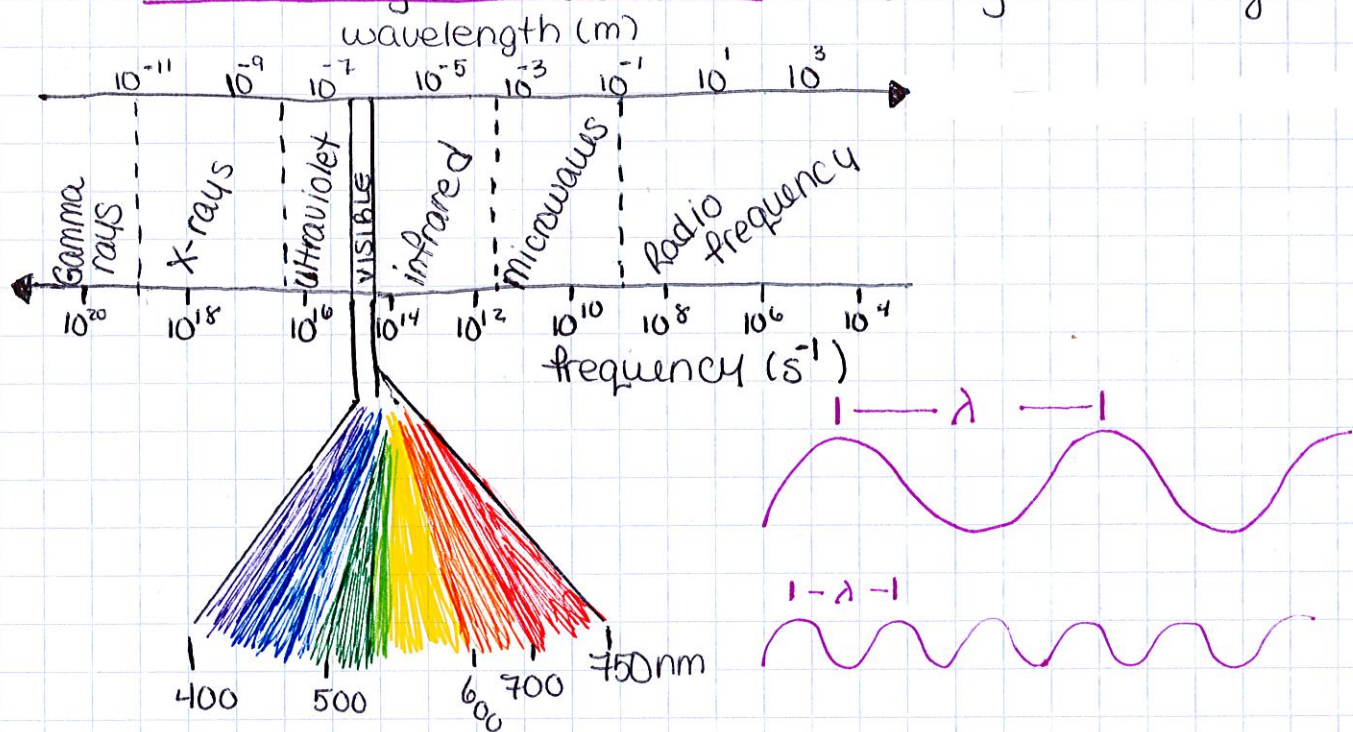 wavelength (m)
10⁻¹¹ 10⁻⁹ 10⁻⁷ 10⁻⁵ 10⁻³ 10⁻¹ 10¹ 10³
Gamma rays
X-rays
ultraviolet
VISIBLE
infrared
microwaves
Radio frequency
10²⁰ 10¹⁸ 10¹⁶ 10¹⁴ 10¹² 10¹⁰ 10⁸ 10⁶ 10⁴
frequency (s⁻¹)
λ
λ
400 500 600 700 750nm